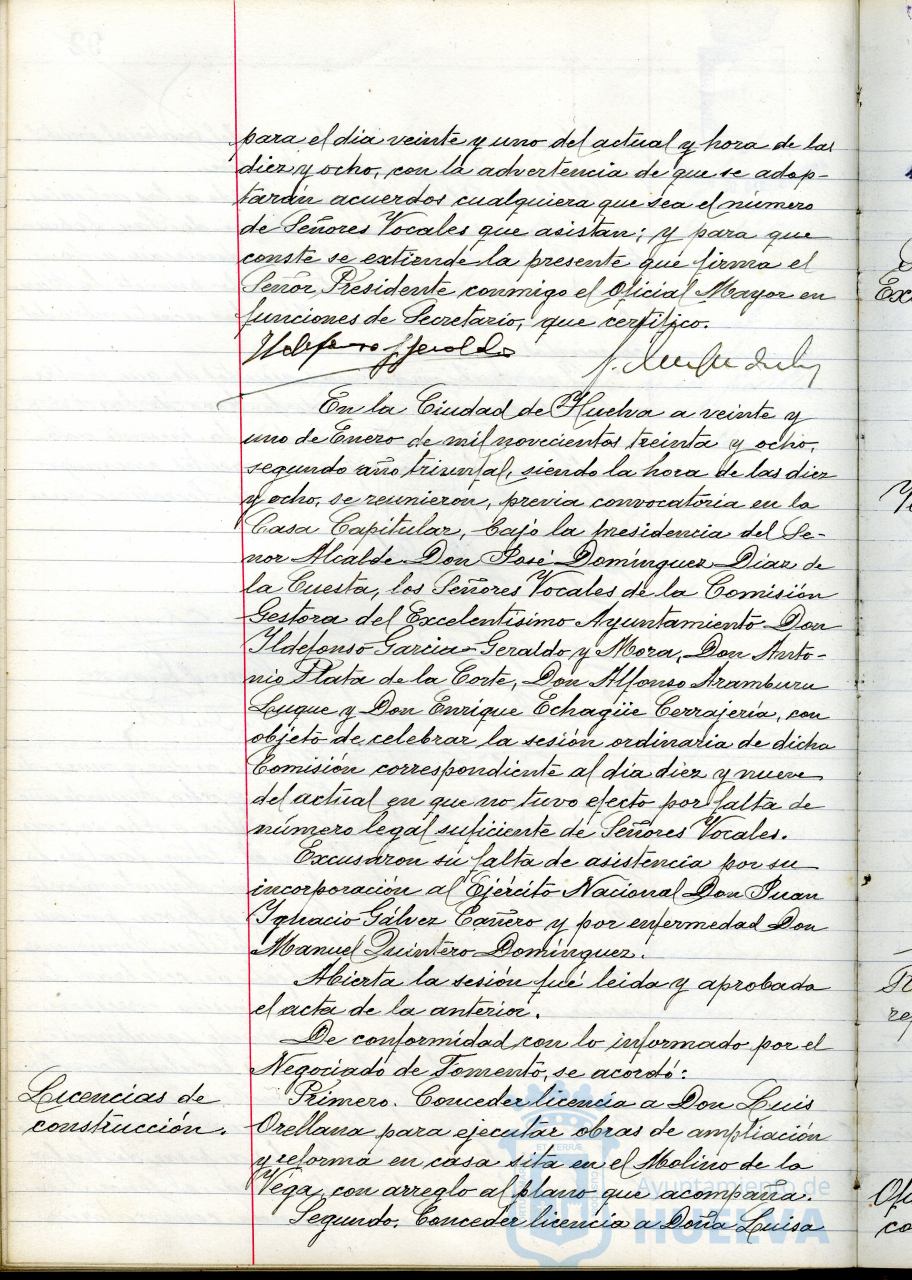 para el dia veinte y uno del actual y hora de las
diez y ocho, con la advertencia de que se adop-
tarán acuerdos cualquiera que sea el número
de Señores Vocales que asistan; y para que
conste se extiende la presente que firma el
Señor Presidente conmigo el Oficial Mayor en
funciones de Secretario, que certifico.
En la Ciudad de Huelva a veinte y
uno de Enero de mil novecientos treinta y ocho,
segundo año triunfal, siendo la hora de las diez
y ocho, se reunieron, previa convocatoria en la
Casa Capitular, bajo la presidencia del Se-
ñor Alcalde Don José Domínguez Díaz de
la Cuesta, los Señores Vocales de la Comisión
Gestora del Excelentísimo Ayuntamiento Don
Ildefonso Garcia-Geraldo y Mora, Don Anto-
nio Plata de la Corte, Don Alfonso Aramburu
Luque y Don Enrique Echagüe Cerrajería, con
objeto de celebrar la sesión ordinaria de dicha
Comisión correspondiente al dia diez y nueve
del actual en que no tuvo efecto por falta de
número legal suficiente de Señores Vocales.
Excusaron su falta de asistencia por su
incorporación al Ejército Nacional Don Juan
Ygnacio Gálvez Cañero y por enfermedad Don
Manuel Quintero Domínguez.
Abierta la sesión fué leida y aprobada
el acta de la anterior.
De conformidad con lo informado por el
Negociado de Fomento, se acordó:
Licencias de
construcción.
Primero. Conceder licencia a Don Luis
Orellana para ejecutar obras de ampliación
y reforma en casa sita en el Molino de la
Vega, con arreglo al plano que acompaña.
Segundo. Conceder licencia a Doña Luisa
Ayuntamiento de
HUELVA